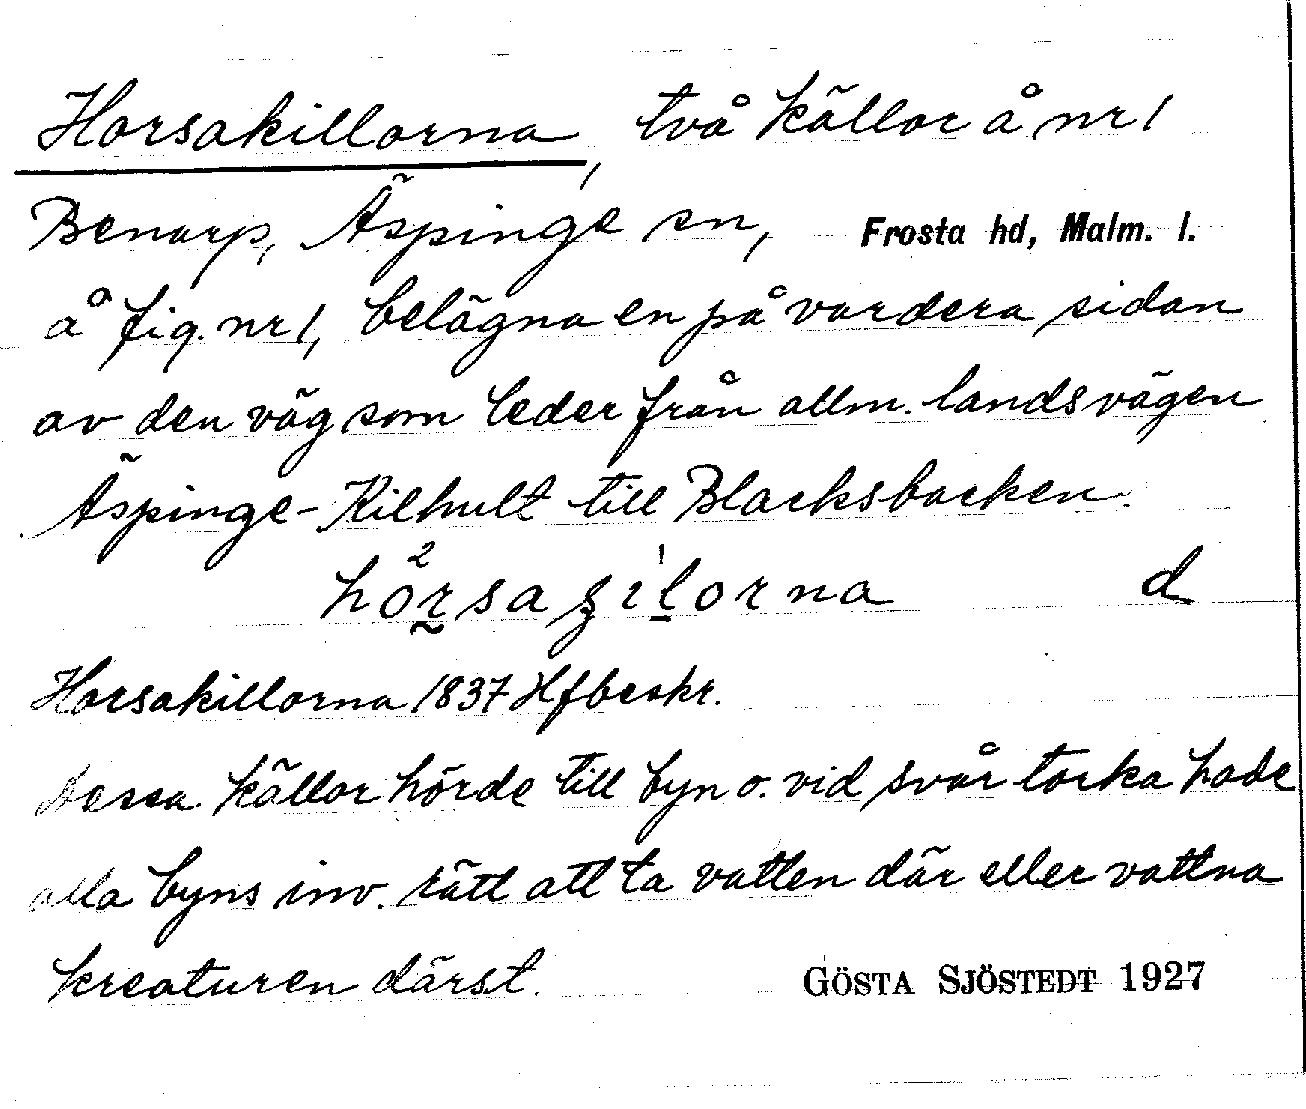 Horsakillorna, två källor å nr 1
Benarp, Äspinge sn, Frosta hd, Malm. l.
å fig. nr 1, belägna en på vardera sidan
av den väg som leder från allm. landsvägen
Äspinge-Kilhult till Blacksbacken.
d
Horsakillorna 1837 Hfbeskr.
Dessa källor hörde till byn o. vid svår torka hade
alla byns inv. rätt att ta vatten där eller vattna
kreaturen därst.
GÖSTA SJÖSTEDT 1927